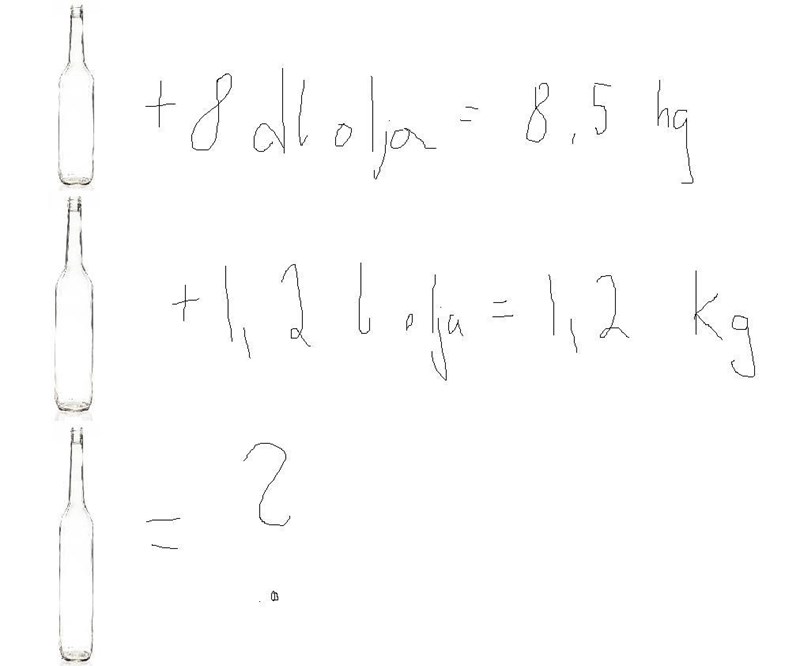 + 8 dl olja = 8,5 hg
+ 1,2 l olja = 1,2 kg
= ?